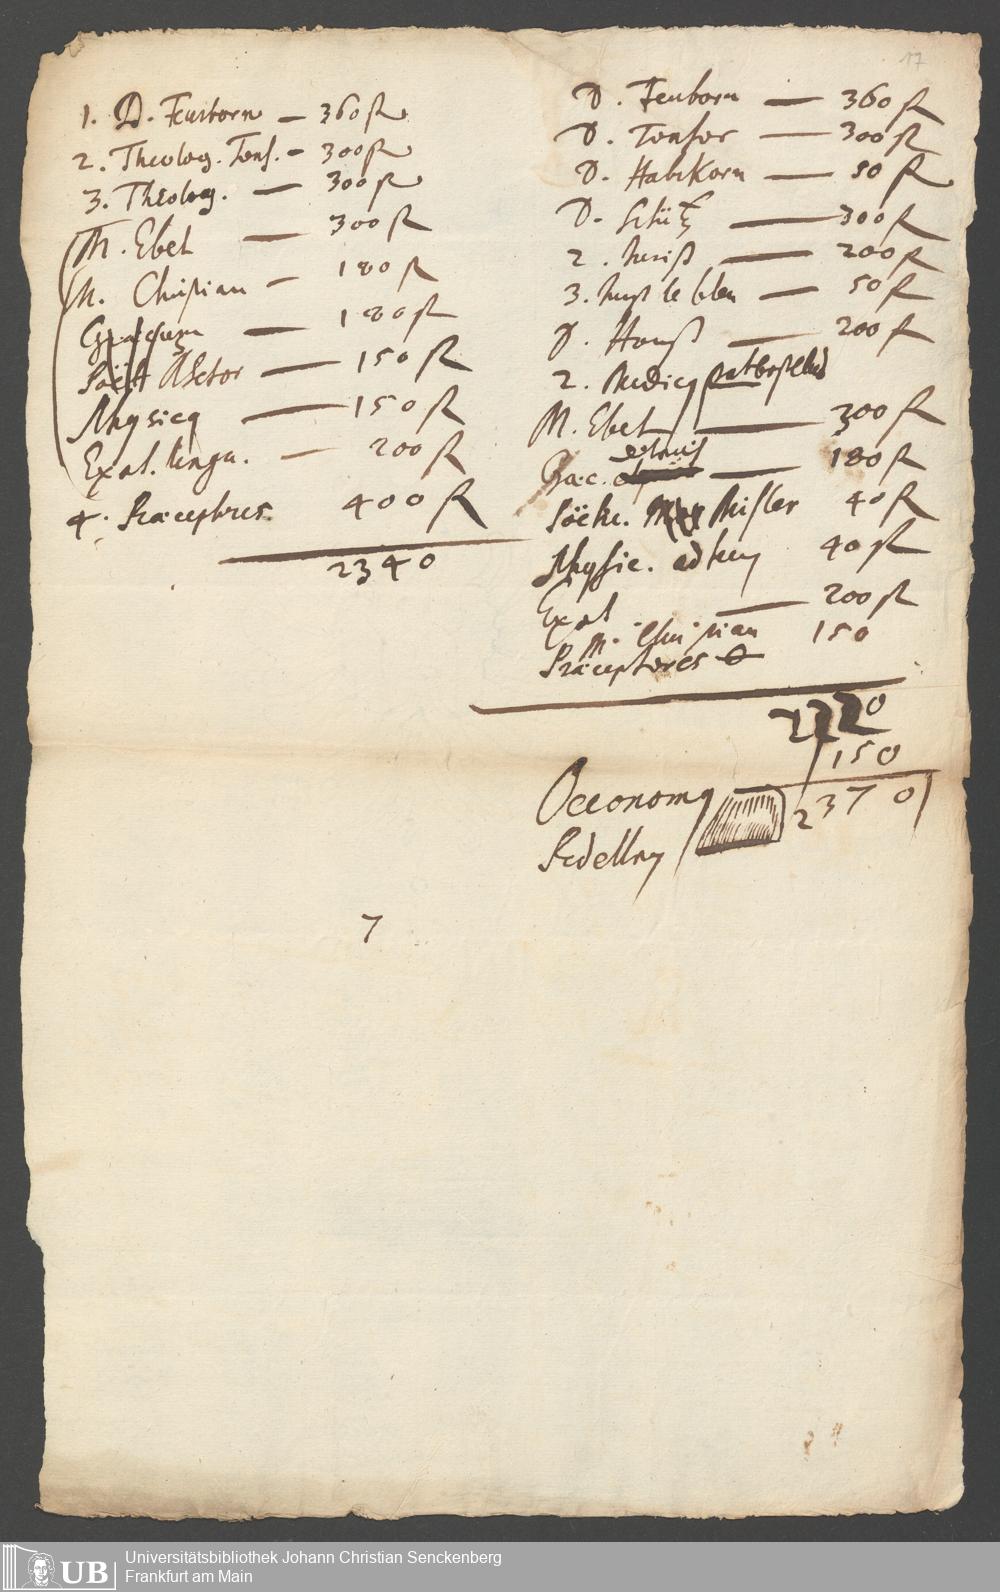 17
1. D. Feurborn — 360 fl
2. Theolog. Tonf. — 300 fl
3. Theolog. — 300 fl
M. Ebel — 300 fl
M. Christian — 180 fl
— 180 fl
Rhetor — 150 fl
Physicg — 150 fl
Exot. lingu. — 200 fl
4. Præceptores 400 fl
2340
D. Feuborn — 360 fl
D. Tonsor — 300 fl
D. Haberkorn — 50 fl
D. Schütz — 300 fl
2. Juriß — 200 fl
3. — 50 fl
D. Horst — 200 fl
2. Medicg
M. Ebel — 300 fl
Græc. — 180 fl
Misler 40 fl
Physic. 40 fl
Exot — 200 fl
M. Christian 150
Præceptores
0
150
2370
Oeconomg
Pedellen
7
Universitätsbibliothek Johann Christian Senckenberg
Frankfurt am Main
UB